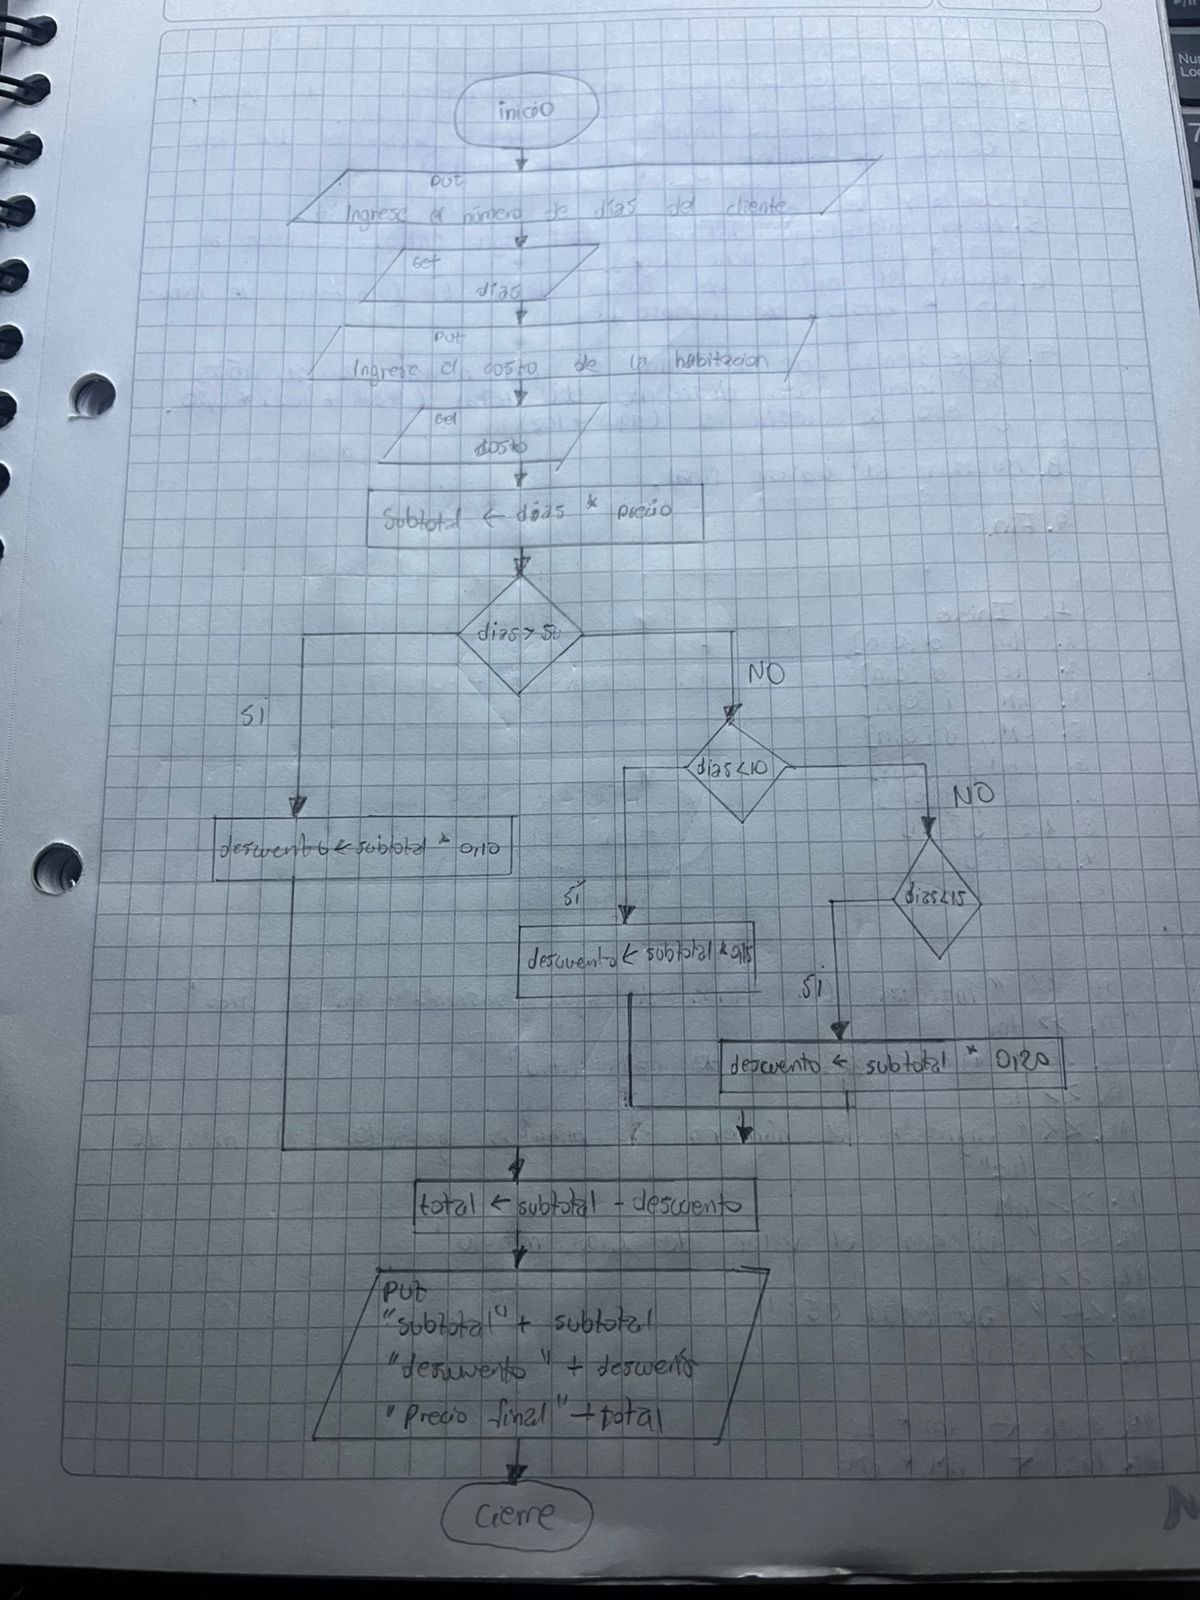 inicio
PUT
Ingrese el número de días del cliente
Get
días
PUT
Ingrese el costo de la habitacion
Get
costo
Subtotal ← días * precio
días > 5
NO
SI
días<10
NO
descuento ← subtotal * 0,10
días<15
SI
descuento ← subtotal * 0,15
SI
descuento ← subtotal * 0,20
total ← subtotal - descuento
PUT
"subtotal" + subtotal
"descuento" + descuento
"Precio final" + total
Cierre
Num
Loc
7
N